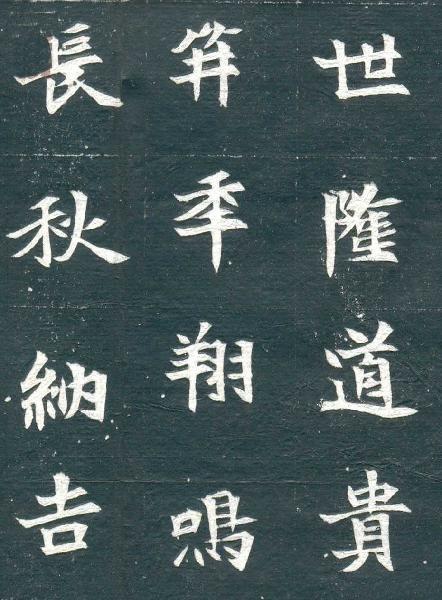 世隆道貴
笄年翔鳴
長秋納吉